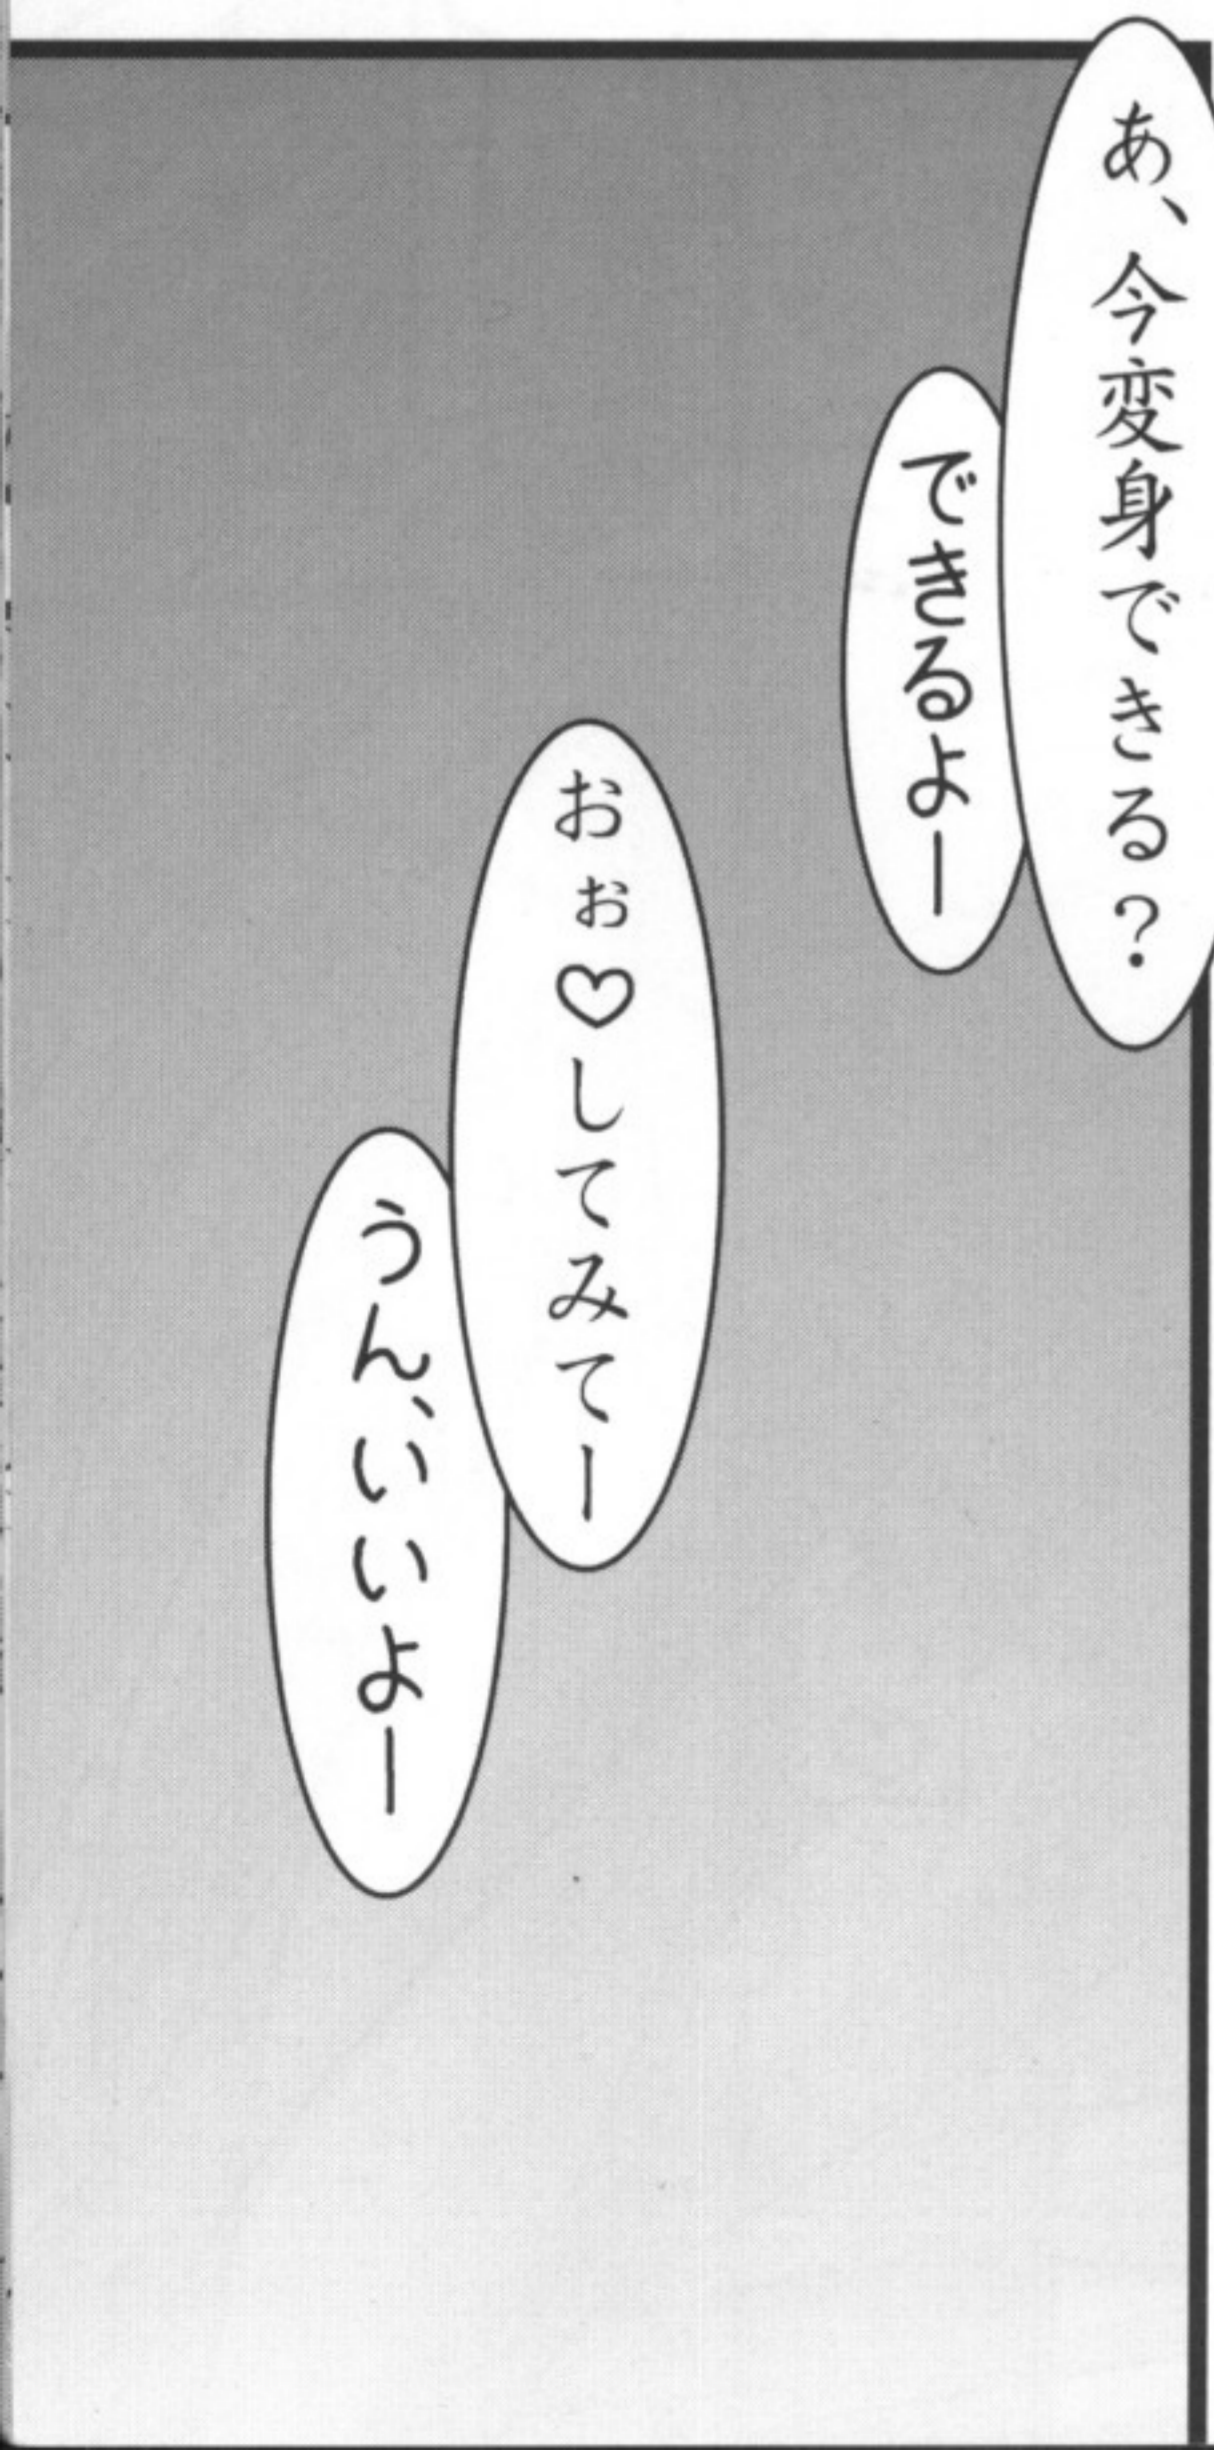 あ、今変身できる？
できるよー
おぉ♡してみてー
うん、いいよー